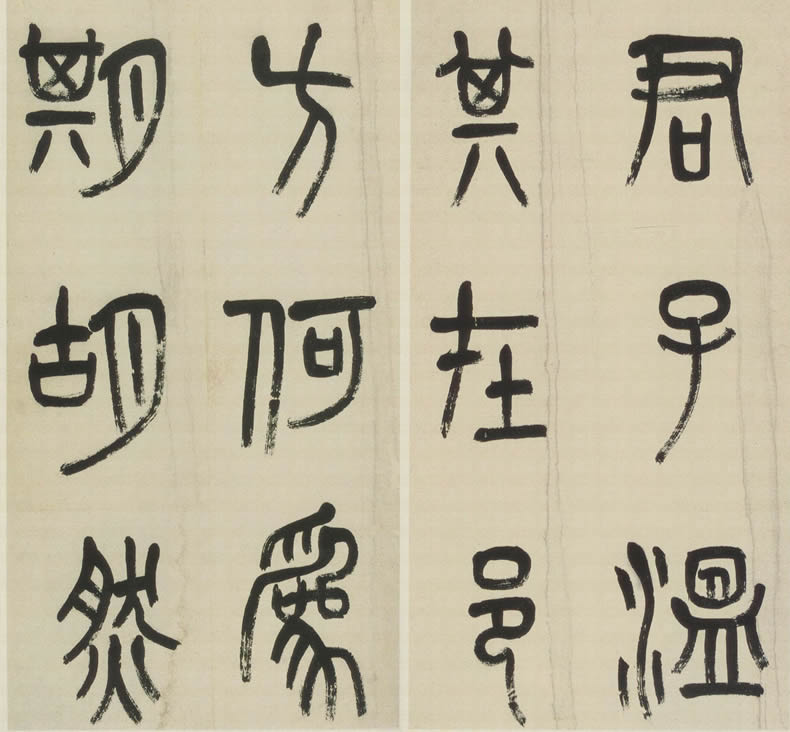 君子溫
其在邑
方何爲
期胡然